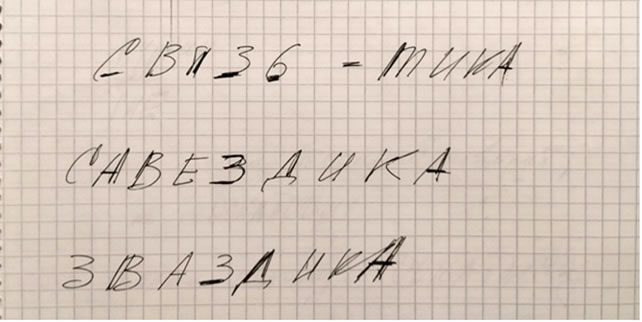 СВЯЗЬ - ТИКА
САВЕЗДИКА
ЗВАЗДИКА